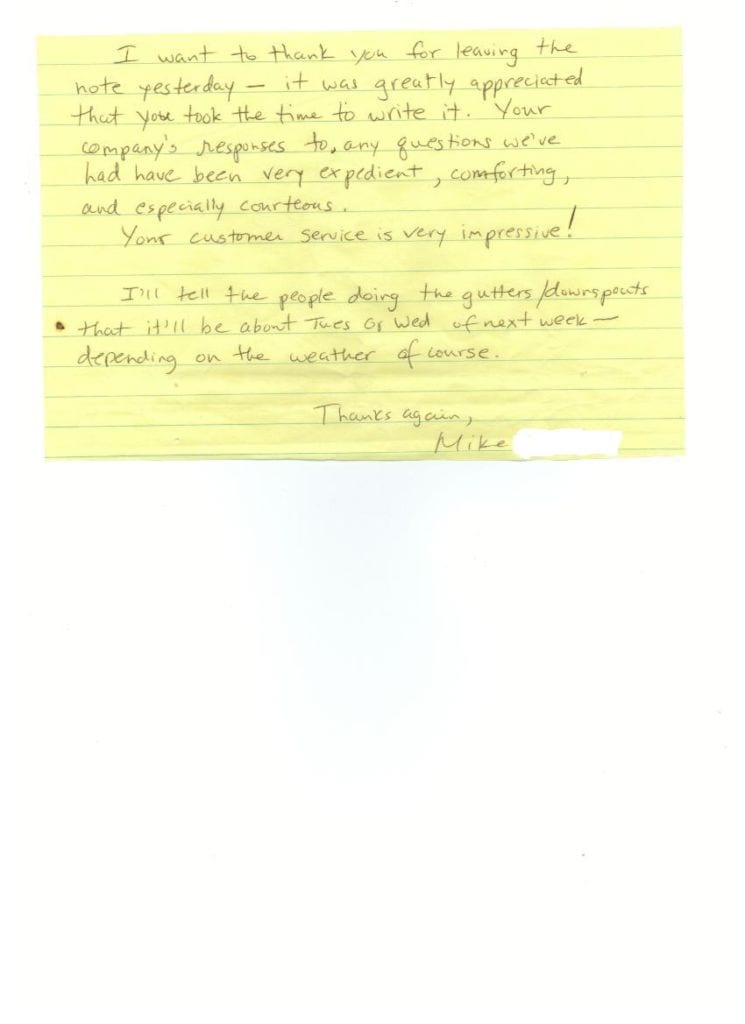 I want to thank you for leaving the
note yesterday — it was greatly appreciated
that you took the time to write it. Your
company's responses to, any questions we've
had have been very expedient, comforting,
and especially courteous.
Your customer service is very impressive!
I'll tell the people doing the gutters/downspouts
that it'll be about Tues or Wed of next week —
depending on the weather of course.
Thanks again,
Mike